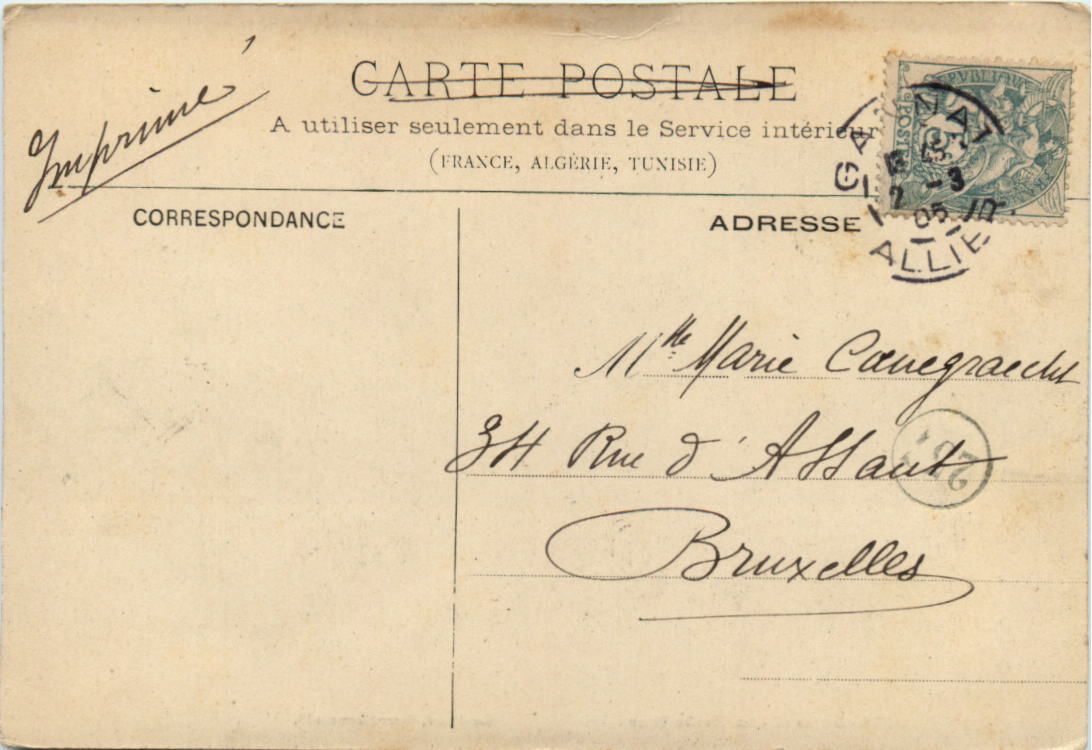 Imprimé
CARTE POSTALE
A utiliser seulement dans le Service intérieur
(FRANCE, ALGÉRIE, TUNISIE)
CORRESPONDANCE
ADRESSE
Mlle Marie Coenegracht
34 Rue d'Assaut
Bruxelles
GANNAT
7 -3
05
ALLIER
POSTES